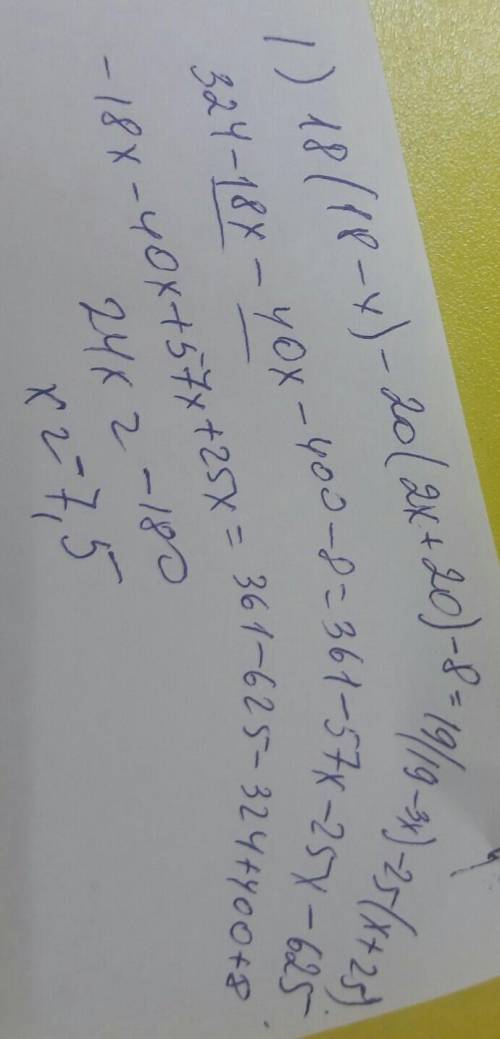 1) 18(18-x)-20(2x+20)-8=19(19-3x)-25(x+25)
324-18x-40x-400-8=361-57x-25x-625
-18x-40x+57x+25x=361-625-324+400+8
24x=-180
x=-7,5